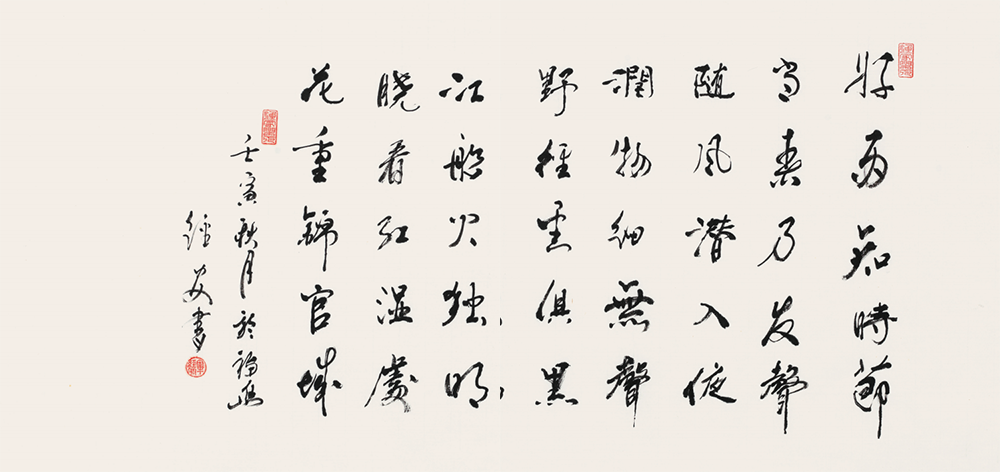 好雨知時節
当春乃发聲
随風潜入夜
潤物細無聲
野徑雲俱黑
江船火独明
曉看紅湿處
花重錦官城
壬寅秋月於
書